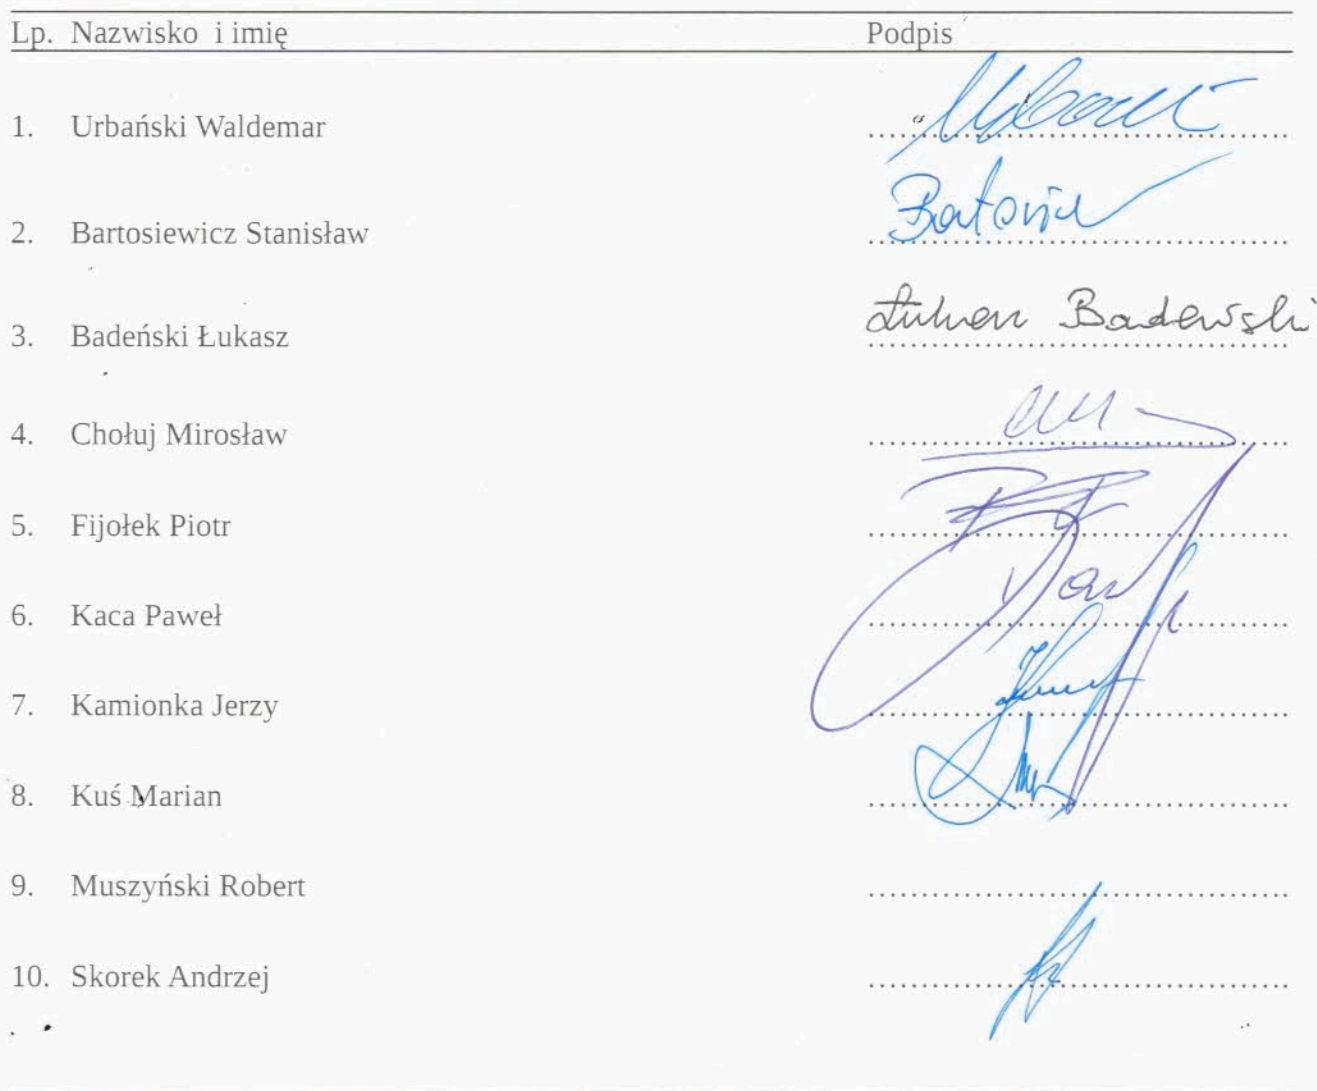 Lp. Nazwisko i imię Podpis
1. Urbański Waldemar
2. Bartosiewicz Stanisław
3. Badeński Łukasz Badeński
4. Chołuj Mirosław
5. Fijołek Piotr
6. Kaca Paweł
7. Kamionka Jerzy
8. Kuś Marian
9. Muszyński Robert
10. Skorek Andrzej